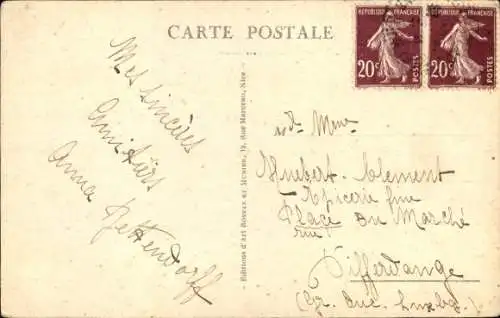 CARTE POSTALE
RÉPUBLIQUE FRANÇAISE
20c POSTES
RÉPUBLIQUE FRANÇAISE
20c POSTES
Mes sincères
Amitiés
Anna
Editions d'Art Rostan et Munier, 19, Rue Nice
Mme
Huebert-Clement
Epicerie fine
Place du Marché
Differdange
(Gr. Duc. Luxbg.)